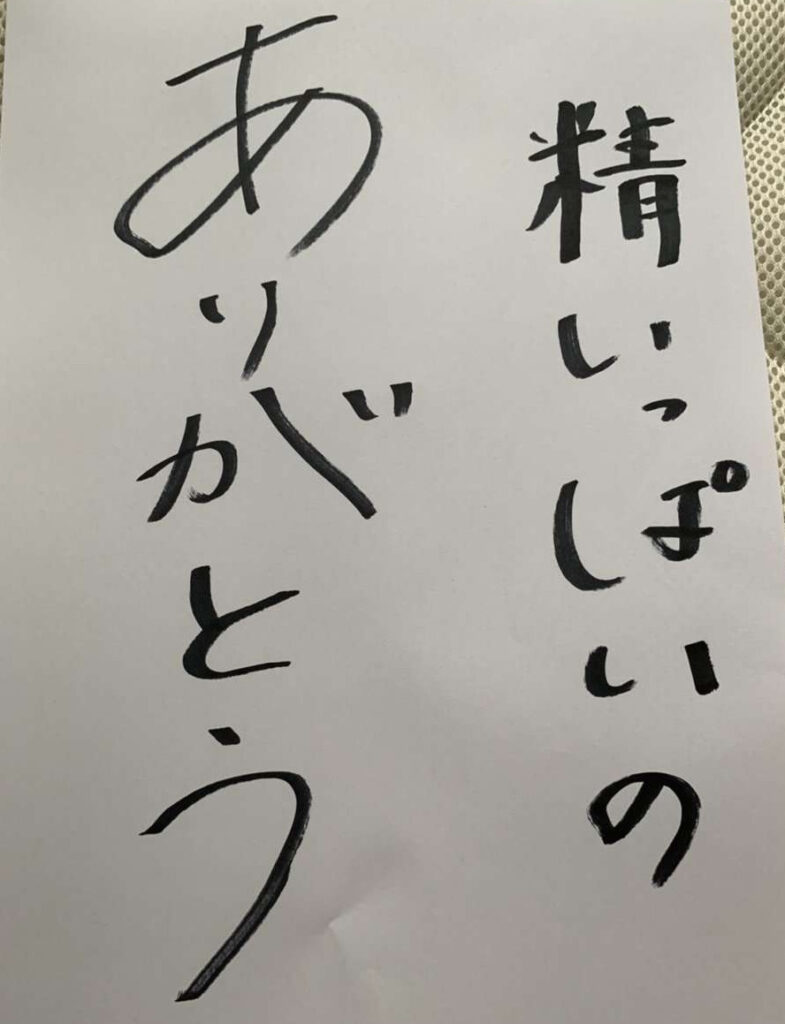 精いっぱいの
ありがとう